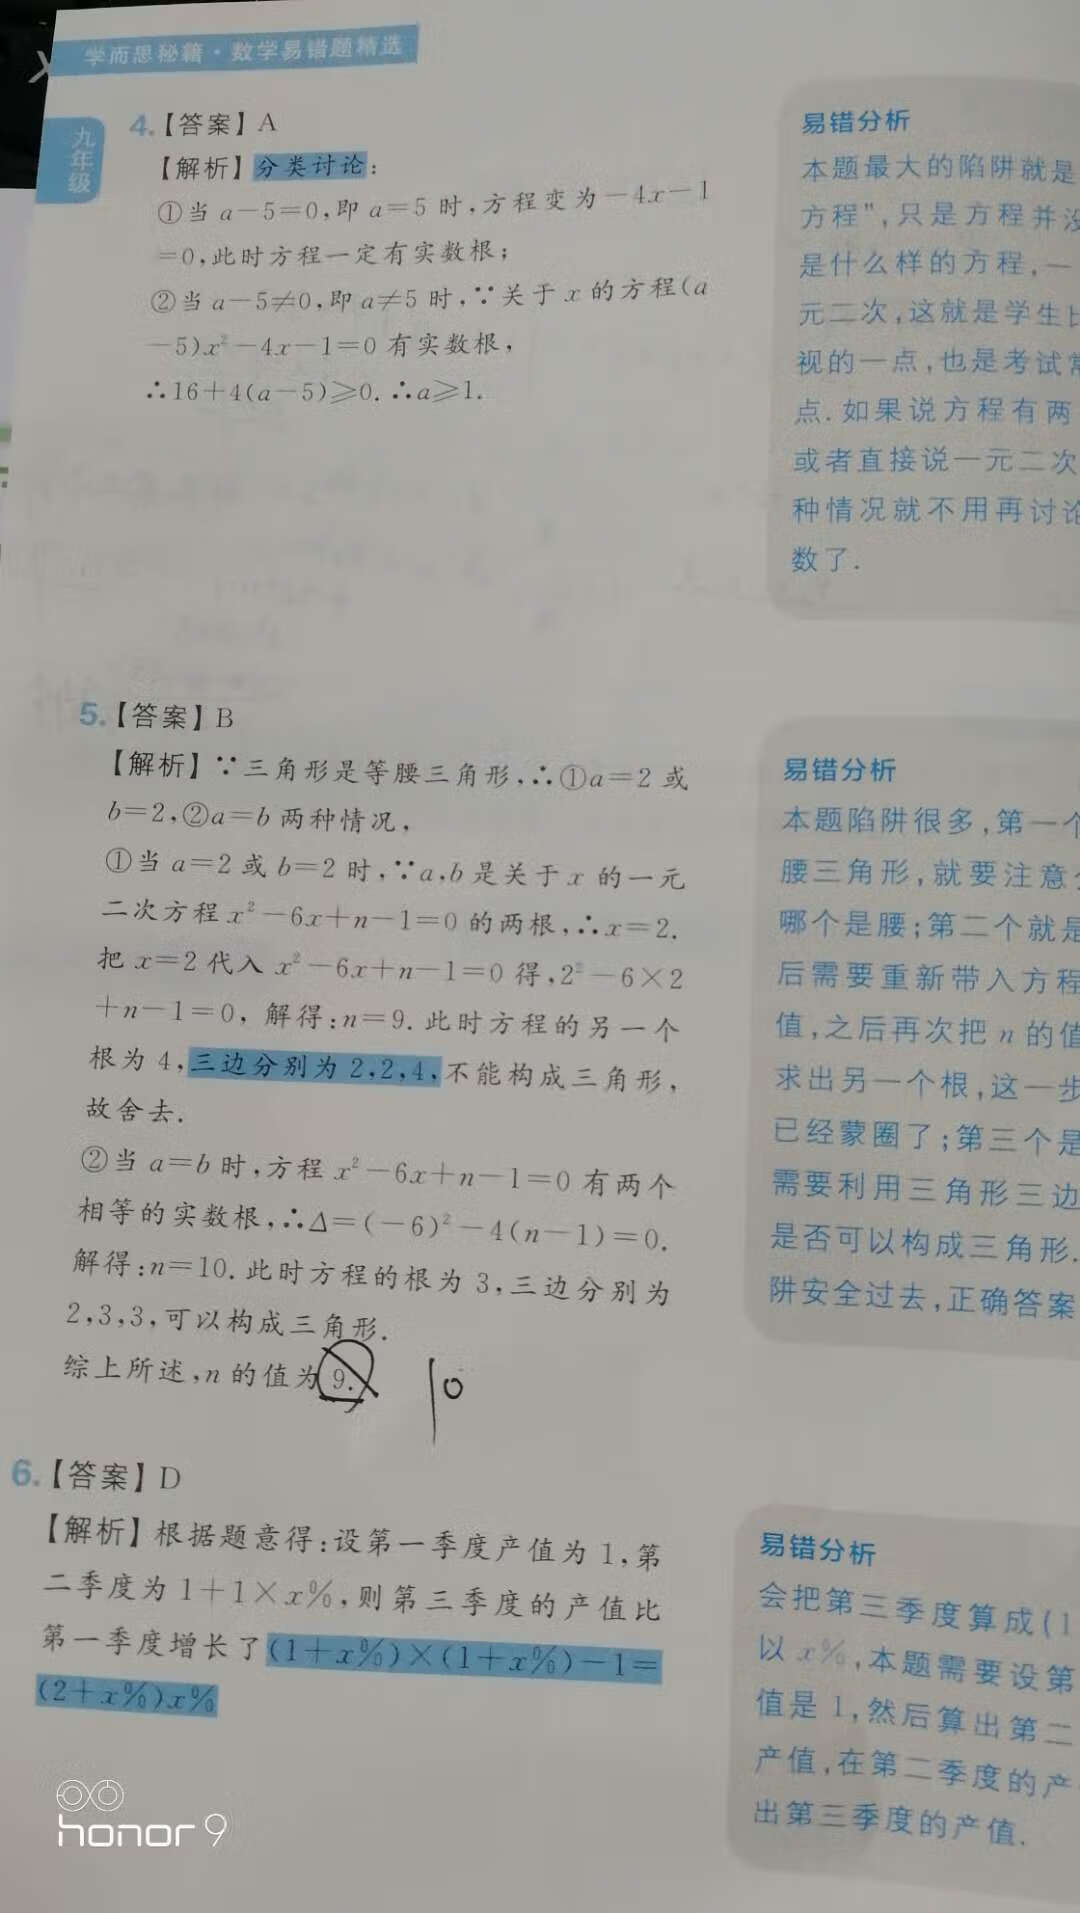 学而思秘籍·数学易错题精选
九年级
4.【答案】A
【解析】分类讨论:
①当a-5=0,即a=5时,方程变为-4x-1
=0,此时方程一定有实数根;
②当a-5≠0,即a≠5时,∵关于x的方程(a
-5)x²-4x-1=0有实数根,
∴16+4(a-5)≥0.∴a≥1.
易错分析
本题最大的陷阱就是
方程”,只是方程并没
是什么样的方程,一
元二次,这就是学生比
视的一点,也是考试常
点.如果说方程有两
或者直接说一元二次
种情况就不用再讨论
数了.
5.【答案】B
【解析】∵三角形是等腰三角形,∴①a=2或
b=2,②a=b两种情况,
①当a=2或b=2时,∵a,b是关于x的一元
二次方程x²-6x+n-1=0的两根,∴x=2.
把x=2代入x²-6x+n-1=0得,2²-6×2
+n-1=0,解得:n=9.此时方程的另一个
根为4,三边分别为2,2,4,不能构成三角形,
故舍去.
②当a=b时,方程x²-6x+n-1=0有两个
相等的实数根,∴Δ=(-6)²-4(n-1)=0.
解得:n=10.此时方程的根为3,三边分别为
2,3,3,可以构成三角形.
综上所述,n的值为9. 10
易错分析
本题陷阱很多,第一个
腰三角形,就要注意分
哪个是腰;第二个就是
后需要重新带入方程
值,之后再次把n的值
求出另一个根,这一步
已经蒙圈了;第三个是
需要利用三角形三边
是否可以构成三角形.
阱安全过去,正确答案
6.【答案】D
【解析】根据题意得:设第一季度产值为1,第
二季度为1+1×x%,则第三季度的产值比
第一季度增长了(1+x%)×(1+x%)-1=
(2+x%)x%
易错分析
会把第三季度算成(1
以x%,本题需要设第
值是1,然后算出第二
产值,在第二季度的产
出第三季度的产值.
honor 9